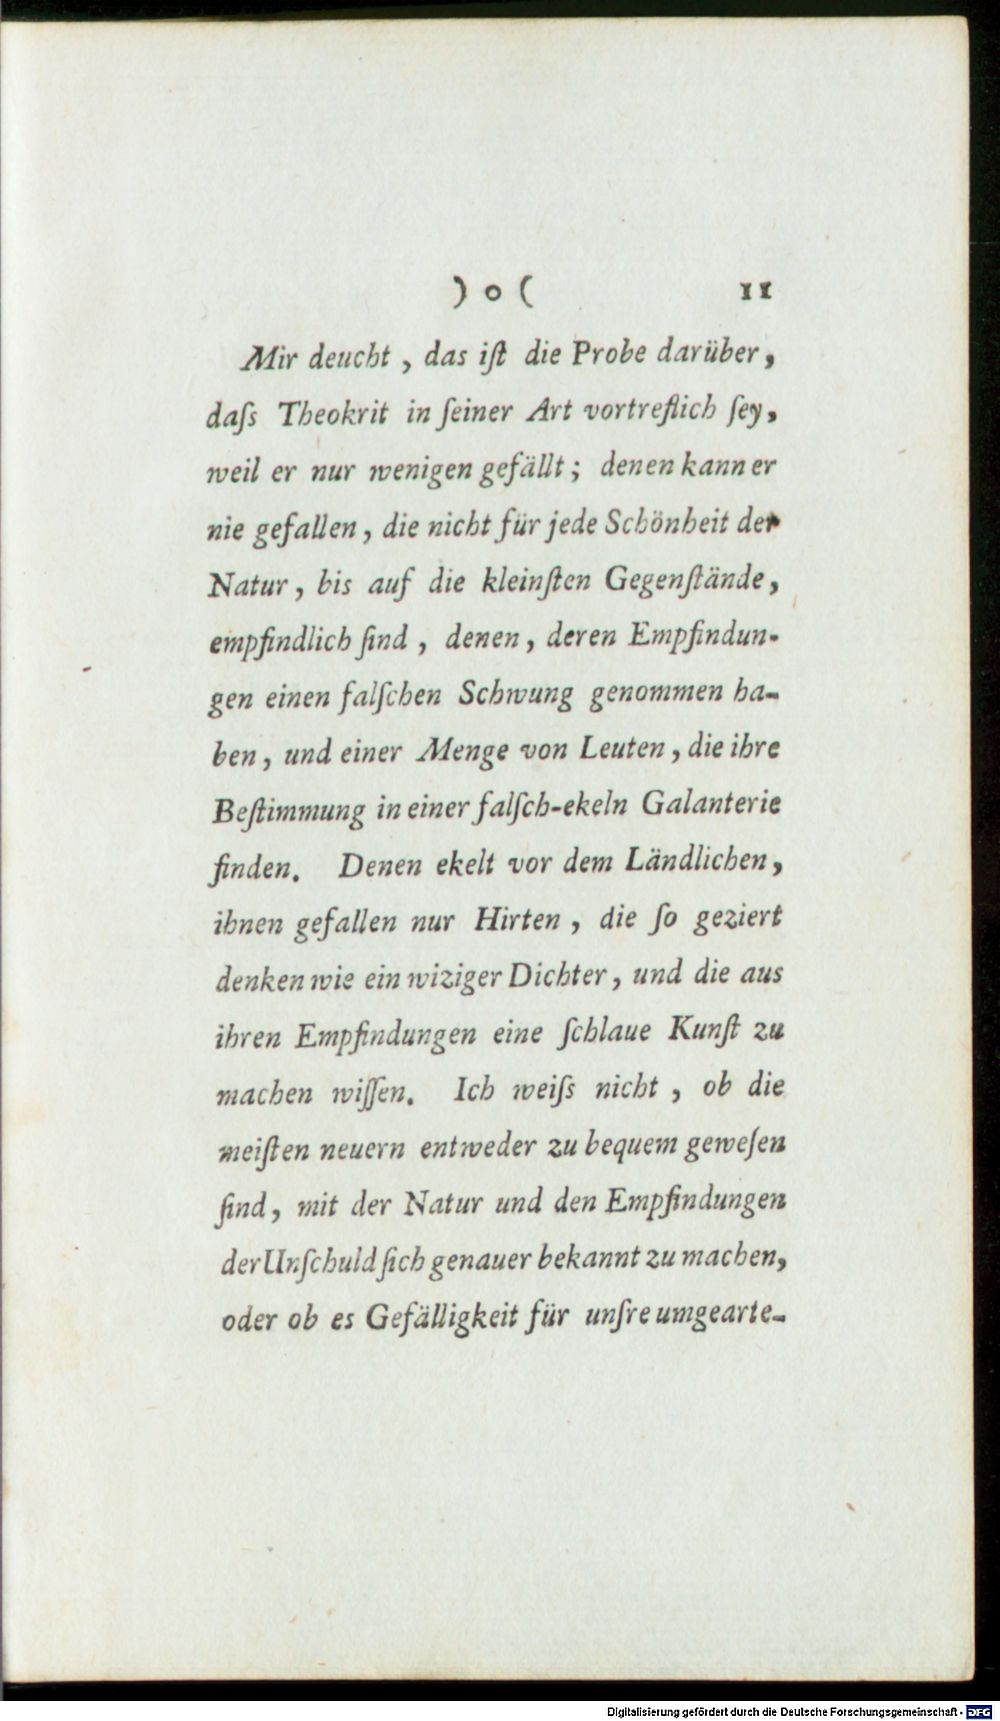 ) o ( 11
Mir deucht, das iſt die Probe darüber,
daſs Theokrit in ſeiner Art vortreflich ſey,
weil er nur wenigen gefällt; denen kann er
nie gefallen, die nicht für jede Schönheit der
Natur, bis auf die kleinſten Gegenſtände,
empfindlich ſind, denen, deren Empfindun-
gen einen falſchen Schwung genommen ha-
ben, und einer Menge von Leuten, die ihre
Beſtimmung in einer falſch-ekeln Galanterie
finden. Denen ekelt vor dem Ländlichen,
ihnen gefallen nur Hirten, die ſo geziert
denken wie ein wiziger Dichter, und die aus
ihren Empfindungen eine ſchlaue Kunſt zu
machen wiſſen. Ich weiſs nicht, ob die
meiſten neuern entweder zu bequem geweſen
ſind, mit der Natur und den Empfindungen
der Unſchuld ſich genauer bekannt zu machen,
oder ob es Gefälligkeit für unſre umgearte-
Digitalisierung gefördert durch die Deutsche Forschungsgemeinschaft - DFG